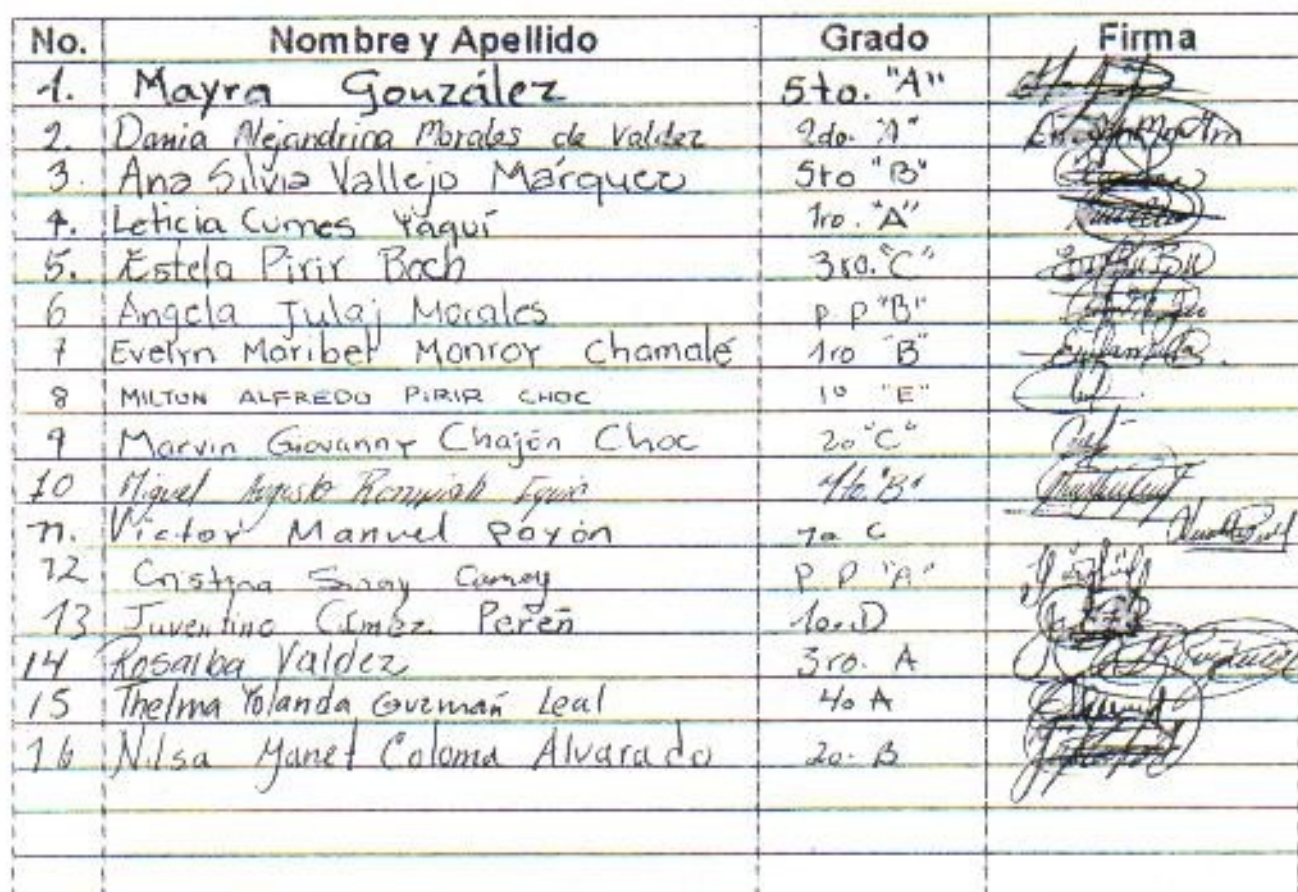 No. Nombre y Apellido Grado Firma
1. Mayra González 5to. "A"
2. Dania Alejandrina Morales de Valdez 2do. "A"
3. Ana Silvia Vallejo Márquez 5to "B"
4. Leticia Cumes Yaquí 1ro. "A"
5. Estela Pirir Boch 3ro. "C"
6 Angela Julaj Morales p.p "B"
7 Evelyn Maribel Monroy Chamalé 1ro "B"
8 MILTON ALFREDO PIRIR CHOC 1º "E"
9 Marvin Giovanny Chajón Choc 2o "C"
10 Miguel Augusto 4to. "B"
11. Victor Manuel Poyón 1a C
12 Cristina Camey P.P "A"
13 Juventino Cúmez Pereñ 1o. D
14 Rosalba Valdez 3ro. A
15 Thelma Yolanda Guzmán Leal 4o A
16 Nilsa Yanet Coloma Alvarado 2o. B